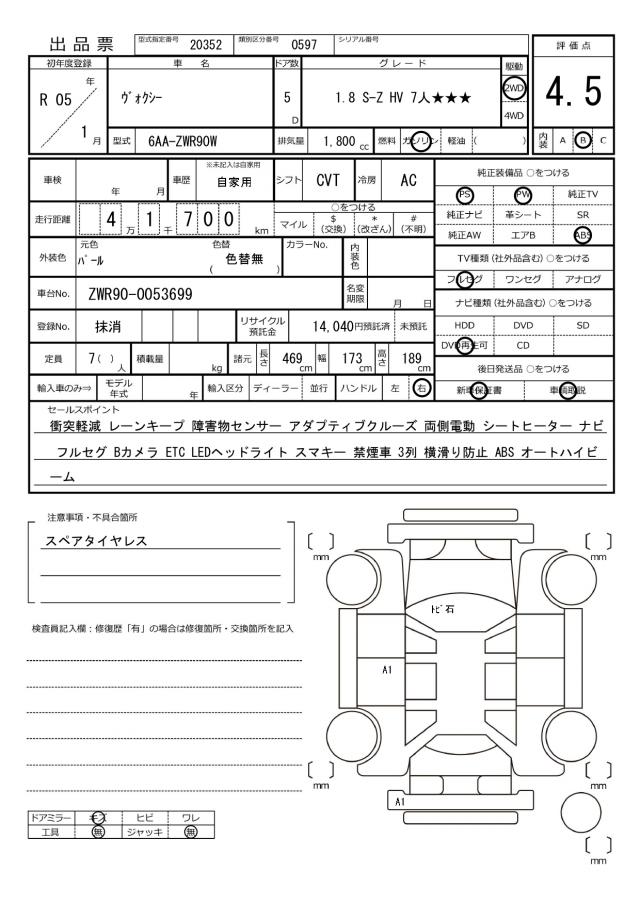 出品票 型式指定番号 20352 類別区分番号 0597 シリアル番号
評価点
4.5
内装 A B C
初年度登録 車名 ドア数 グレード 駆動
R 05 年 1 月 ヴォクシー 5 D 1.8 S-Z HV 7人★★★ 2WD 4WD
型式 6AA-ZWR90W 排気量 1,800 cc 燃料 ガソリン 軽油 ( )
車検 年 月 車歴 ※未記入は自家用 自家用 シフト CVT 冷房 AC
走行距離 4 万 1 千 7 0 0 km
○をつける
マイル $(交換) *(改ざん) #(不明)
外装色 元色 パール 色替 ( 色替無 ) カラーNo. 内装色
車台No. ZWR90-0053699 名変期限 月 日
登録No. 抹消 リサイクル預託金 14,040円預託済 未預託
定員 7( ) 人 積載量 kg 諸元 長さ 469 cm 幅 173 cm 高さ 189 cm
輸入車のみ⇒ モデル年式 年 輸入区分 ディーラー 並行 ハンドル 左 右
純正装備品 ○をつける
PS PW 純正TV
純正ナビ 革シート SR
純正AW エアB ABS
TV種類(社外品含む)○をつける
フルセグ ワンセグ アナログ
ナビ種類(社外品含む)○をつける
HDD DVD SD
DVD再生可 CD
後日発送品 ○をつける
新車保証書 車輌取説
セールスポイント
衝突軽減 レーンキープ 障害物センサー アダプティブクルーズ 両側電動 シートヒーター ナビ
フルセグ Bカメラ ETC LEDヘッドライト スマキー 禁煙車 3列 横滑り防止 ABS オートハイビ
ーム
注意事項・不具合箇所
スペアタイヤレス
検査員記入欄：修復歴「有」の場合は修復箇所・交換箇所を記入
ドアミラー キズ ヒビ ワレ
工具 無 ジャッキ 無
〔 〕 mm
〔 〕 mm
トビ石
A1
〔 〕 mm
〔 〕 mm
A1
〔 〕 mm